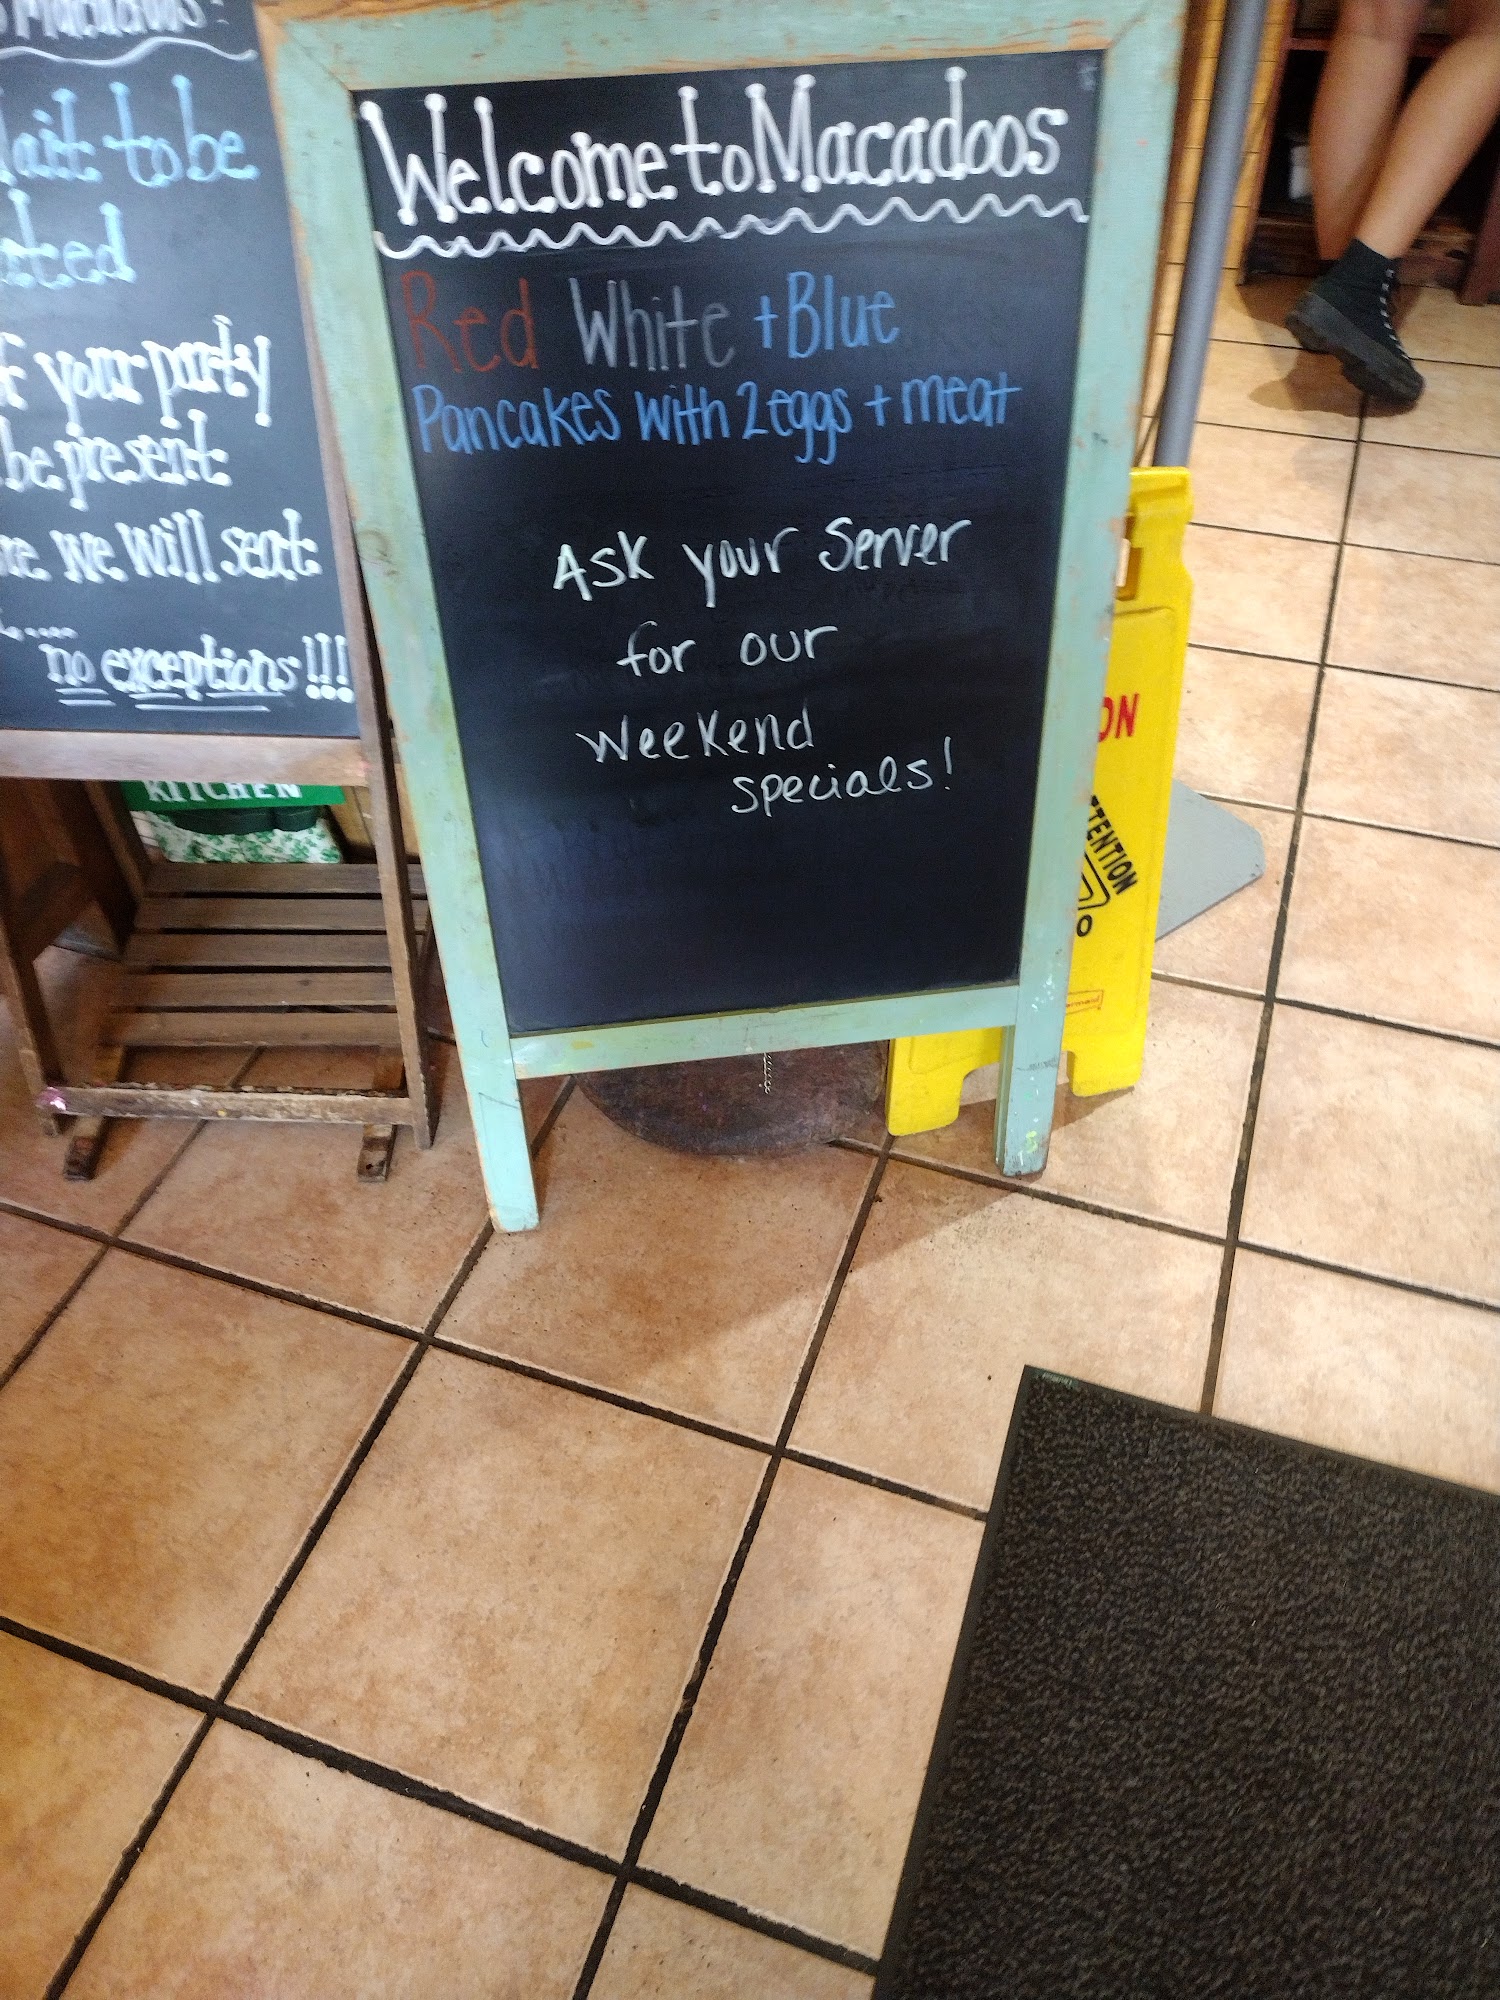 Macadoos!
to be
your party
be present
we will seat
no exceptions!!!
KITCHEN
Welcome to Macadoos
Red White + Blue
Pancakes with 2 eggs + meat
Ask your Server
for our
Weekend
specials!
ON
TENTION